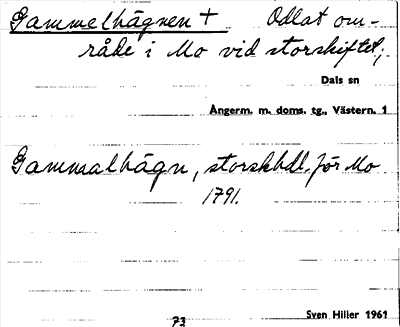 Gammelhägnen + Odlat om-
råde i Mo vid storskiftet;
Dals sn
Ångerm. m. doms. tg., Västern. 1
Gammalhägn, storskhdl. för Mo
1791.
73 Sven Hiller 1961